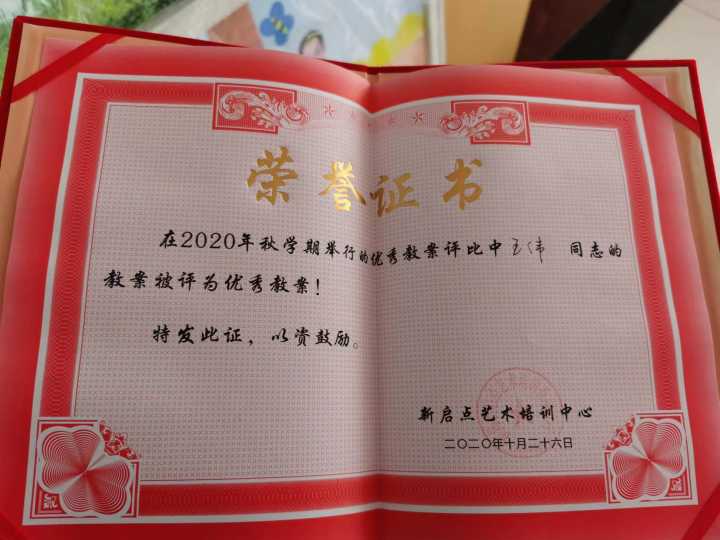 荣誉证书
在2020年秋学期举行的优秀教案评比中王伟 同志的
教案被评为优秀教案!
特发此证，以资鼓励。
新启点艺术培训中心
二〇二〇年十月二十六日